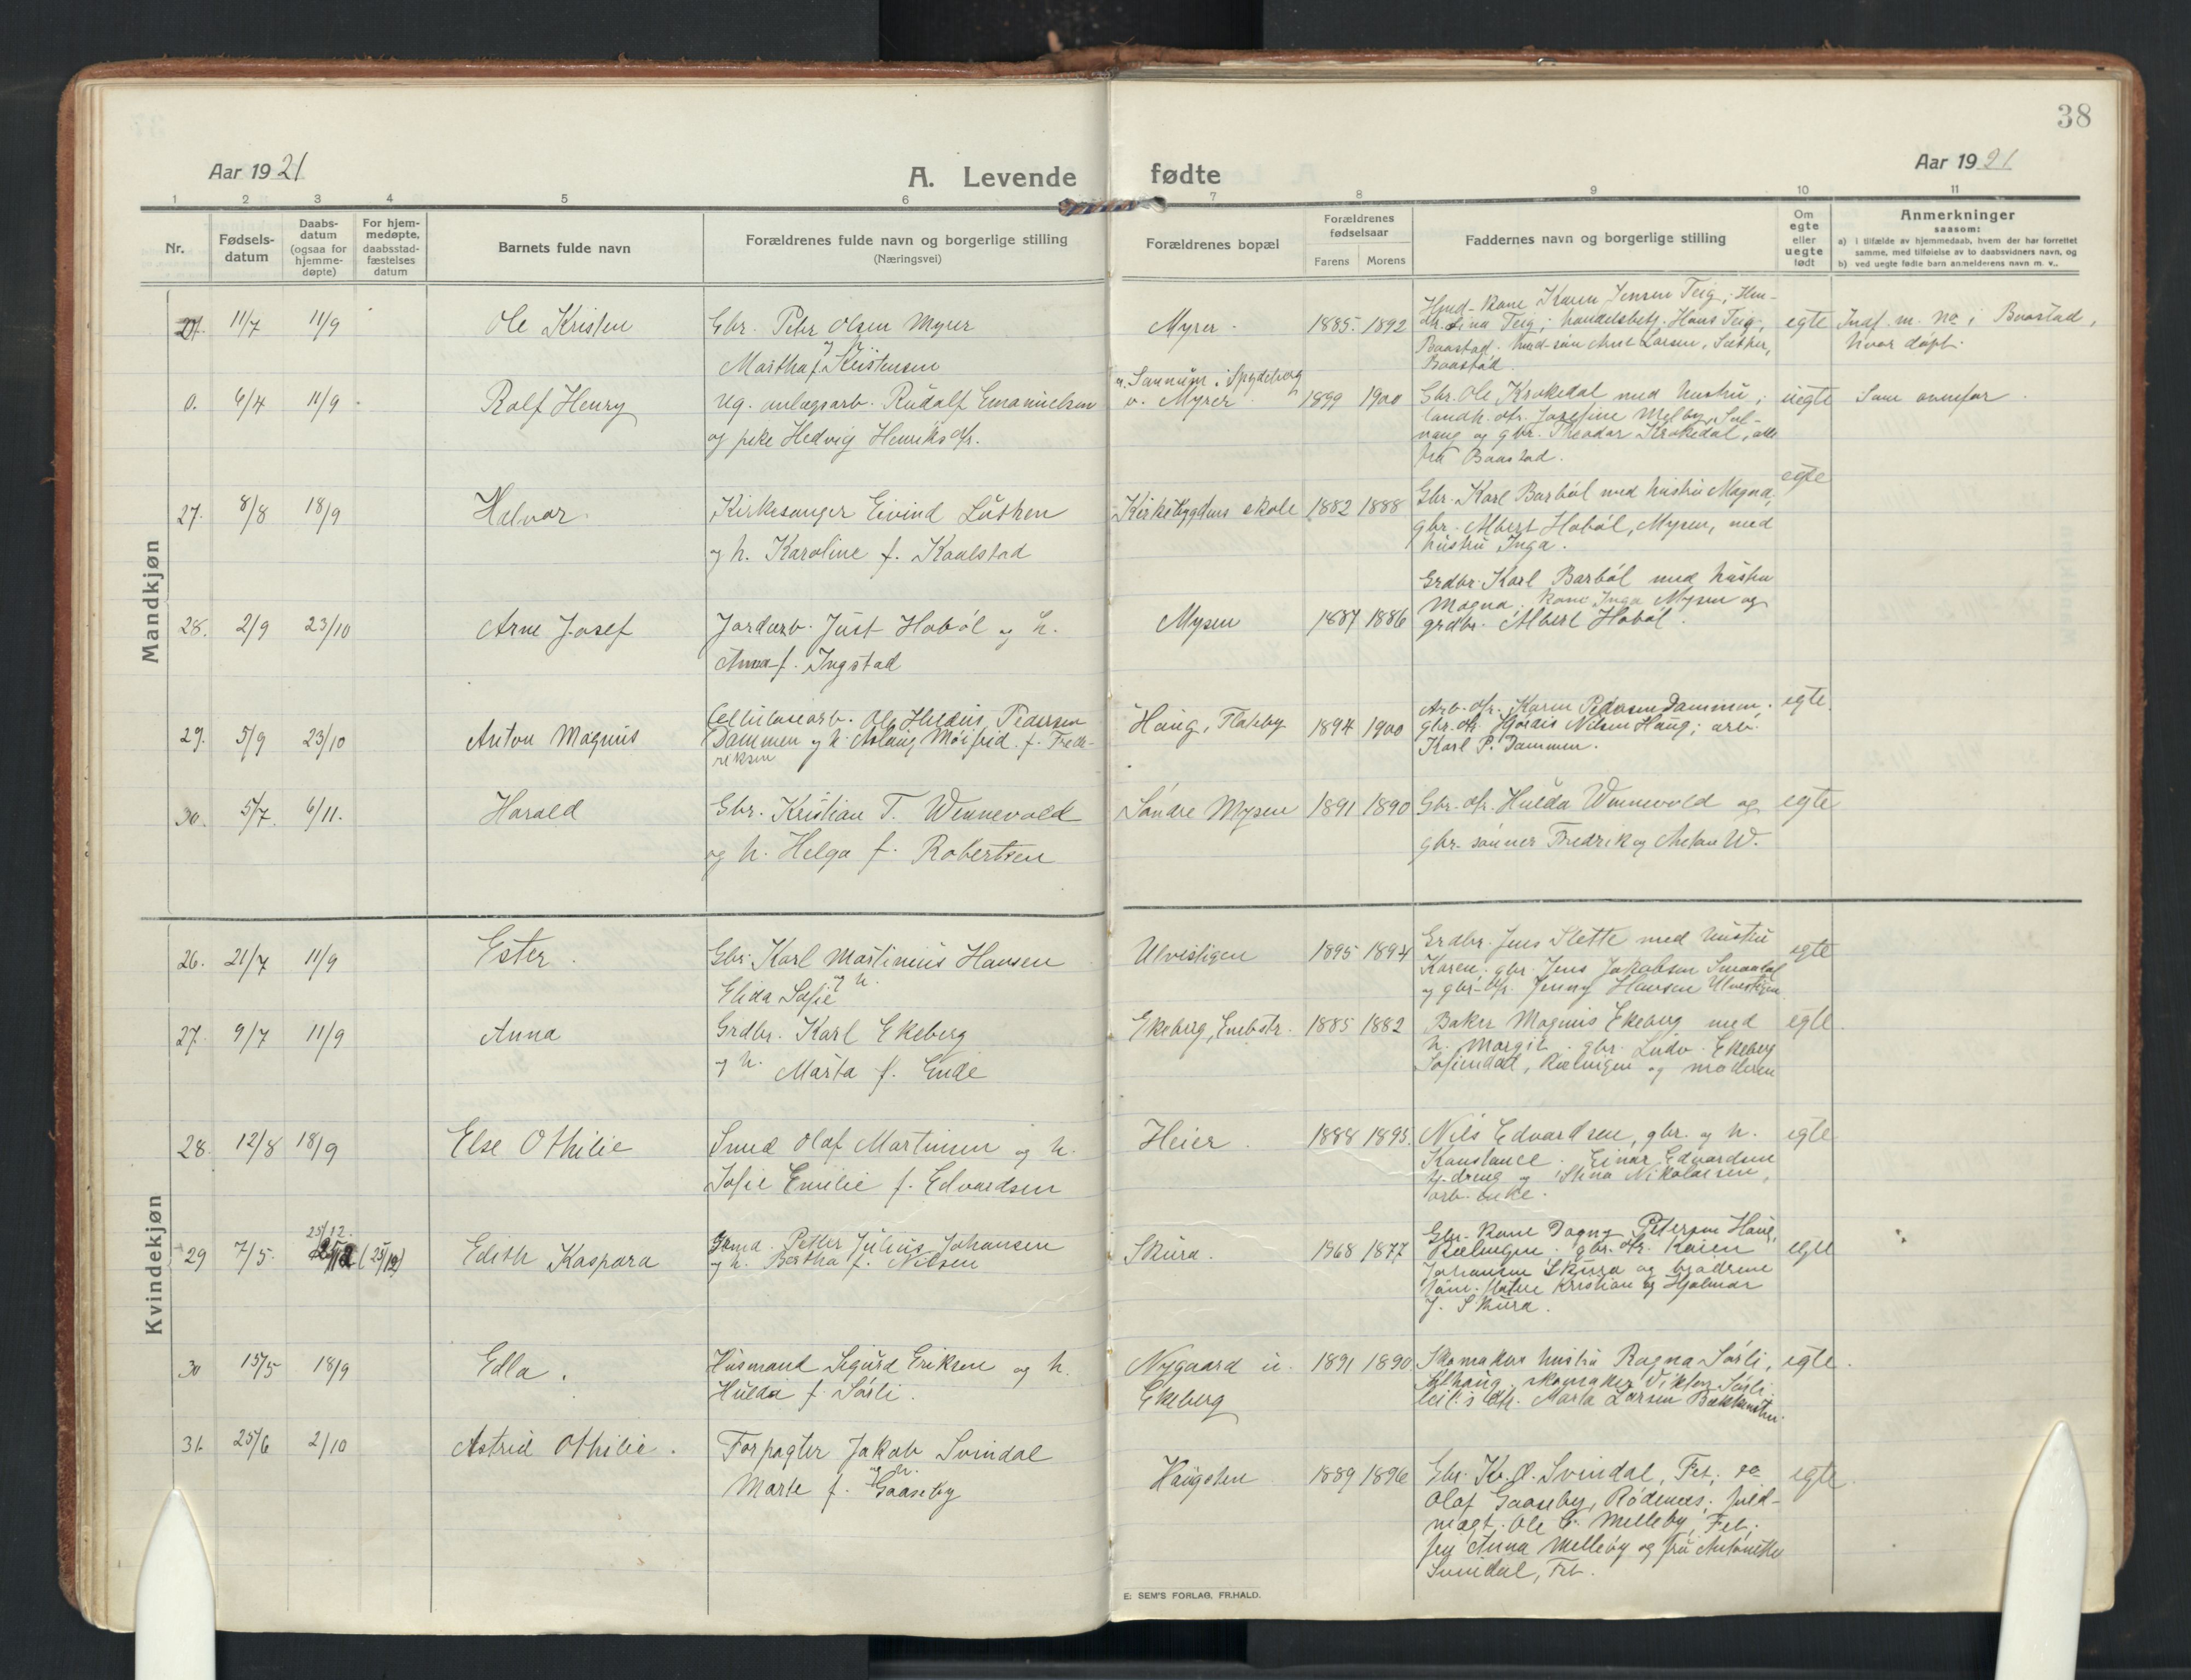 38
Aar 1921
A. Levende fødte
Aar 1921
1 2 3 4 5 6 7 8 9 10 11
Nr.
Fødsels-
datum
Daabs-
datum
(ogsaa for
hjemme-
døpte)
For hjem-
medøpte,
daabsstad-
fæstelses
datum
Barnets fulde navn
Forældrenes fulde navn og borgerlige stilling
(Næringsvei)
Forældrenes bopæl
Forældrenes
fødselsaar
Farens Morens
Faddernes navn og borgerlige stilling
Om
egte
eller
uegte
født
Anmerkninger
saasom:
a) i tilfælde av hjemmedaab, hvem der har forrettet
samme, med tilføielse av to daabsvidners navn, og
b) ved uegte fødte barn anmelderens navn m. v..
Mandkjøn
11/7 11/9 Ole Kristen
Gbr. Petr Olsen Myrer
og
Martha f. Kristensen
Myrer. 1885. 1892
Hmd-kone Karen Jensen Teig,
Lina Teig; handelsbetj. Hans Teig,
Baastad. hmd-søn Larsen, Sæther,
Baastad.
egte
Indf. m. no i Baastad,
hvor døpt.
0. 6/4 11/9. Rolf Henry
Ug. anlægsarb. Rudolf Emanuelsen
og pike Hedvig Henriksdtr.
Sannum i Spydeberg
v. Myrer. 1899 1900
Gbr. Ole Krokedal med hustru;
landh. dtr. Josefine Melby, Sul-
vaug og gbr. Theodor Krokedal, alle
fra Baastad.
uegte
Som ovenfor.
27. 8/8 18/9 Halvor.
Kirkesanger Eivind Luthen
og h. Karoline f. Kaalstad
Kirkebygdens skole 1882 1888
Gbr. Karl Barbøl med hustru Magna,
gbr. Albert Habøl, Mysen, med
hustru Inga.
egte
28. 2/9 23/10 Arne Josef
Jordarb. Just Habøl og h.
Anna f. Ingstad
Mysen 1887 1886
Grdbr. Karl Barbøl med hustru
Magna, kone Inga Mysen og
grdbr. Albert Habøl.
29. 5/9 23/10 Anton Magnus
Cellulosearb. Ole Pedersen
Dammen og h. Aslaug Møifrid f. Fred-
riksen
Haug, Flateby 1894 1900
Arb. dtr. Karen Pedersen Dammen.
gbr. dtr. Hjørdis Nilsen Haug; arb.
Karl P. Dammen.
egte
30. 5/7. 6/11. Harald
Gbr. Kristian T. Wennevold
og h. Helga f. Robertsen
Søndre Mysen 1891 1890
Gbr. dtr. Hulda Wennevold og
gbr. sønner Fredrik og Anton W.
egte
Kvindekjøn
26. 21/7 11/9 Ester.
Gbr. Karl Martinius Hansen
og h.
Elida Sofie
Ulvestigen 1895 1894
Grdbr. Jens Slette med hustru
Karen; gbr. Jens Jakobsen
og gbr. dtr. Jenny Hansen Ulvestigen.
egte
27. 9/7 11/9 Anna
Grdbr. Karl Ekeberg
og h. Marta f. Eude
Ekeberg, Enebstr. 1885 1882
Baker Magnus Ekeberg med
h. Margit. gbr. Ludv. Ekeberg
Sofiendal, Rælingen og moderen
egte.
28. 12/8 18/9 Else Othilie
Smed Olaf Martinsen og h.
Sofie Emilie f. Edvardsen
Heier. 1888 1895.
Nils Edvardsen, gbr. og h.
Konstance. Einar Edvardsen
tj.dreng og Stina Nikolaisen,
arb. enke.
egte.
29 7/5. 25/12. (25/12) Edith Kaspara
Petter Julius Johansen
og h. Bertha f. Nilsen
Skura. 1868 1877
Gbr. kone Dagny Petersen Haug,
Rælingen. gbr. dtr. Karen
Johansen Skura og brødrene
Kristian og Hjalmar
J. Skura.
egte
30 15/5 18/9 Edla.
Husmand Sigurd Eriksen og h.
Hulda f. Sørli.
Nygaard u. 1891 1890
Ekeberg
Skomaker hustru Ragna Sørli,
skomaker Viktor Sørli.
dtr. Marta Larsen
egte.
31. 25/6 2/10 Astrid Othilie.
Forpagter Jakob Svindal
og h.
Marte f. Gaaseby
Haugsten 1889 1896
Gbr. Kr. O. Svindal, Fet;
Olaf Gaaseby, Rødenes; fuld-
mægt. Ole C. Melleby, Fet;
fru Anna Melleby og fru Antonette
Svindal, Fet.
egte.
E: SEM'S FORLAG, FR.HALD.